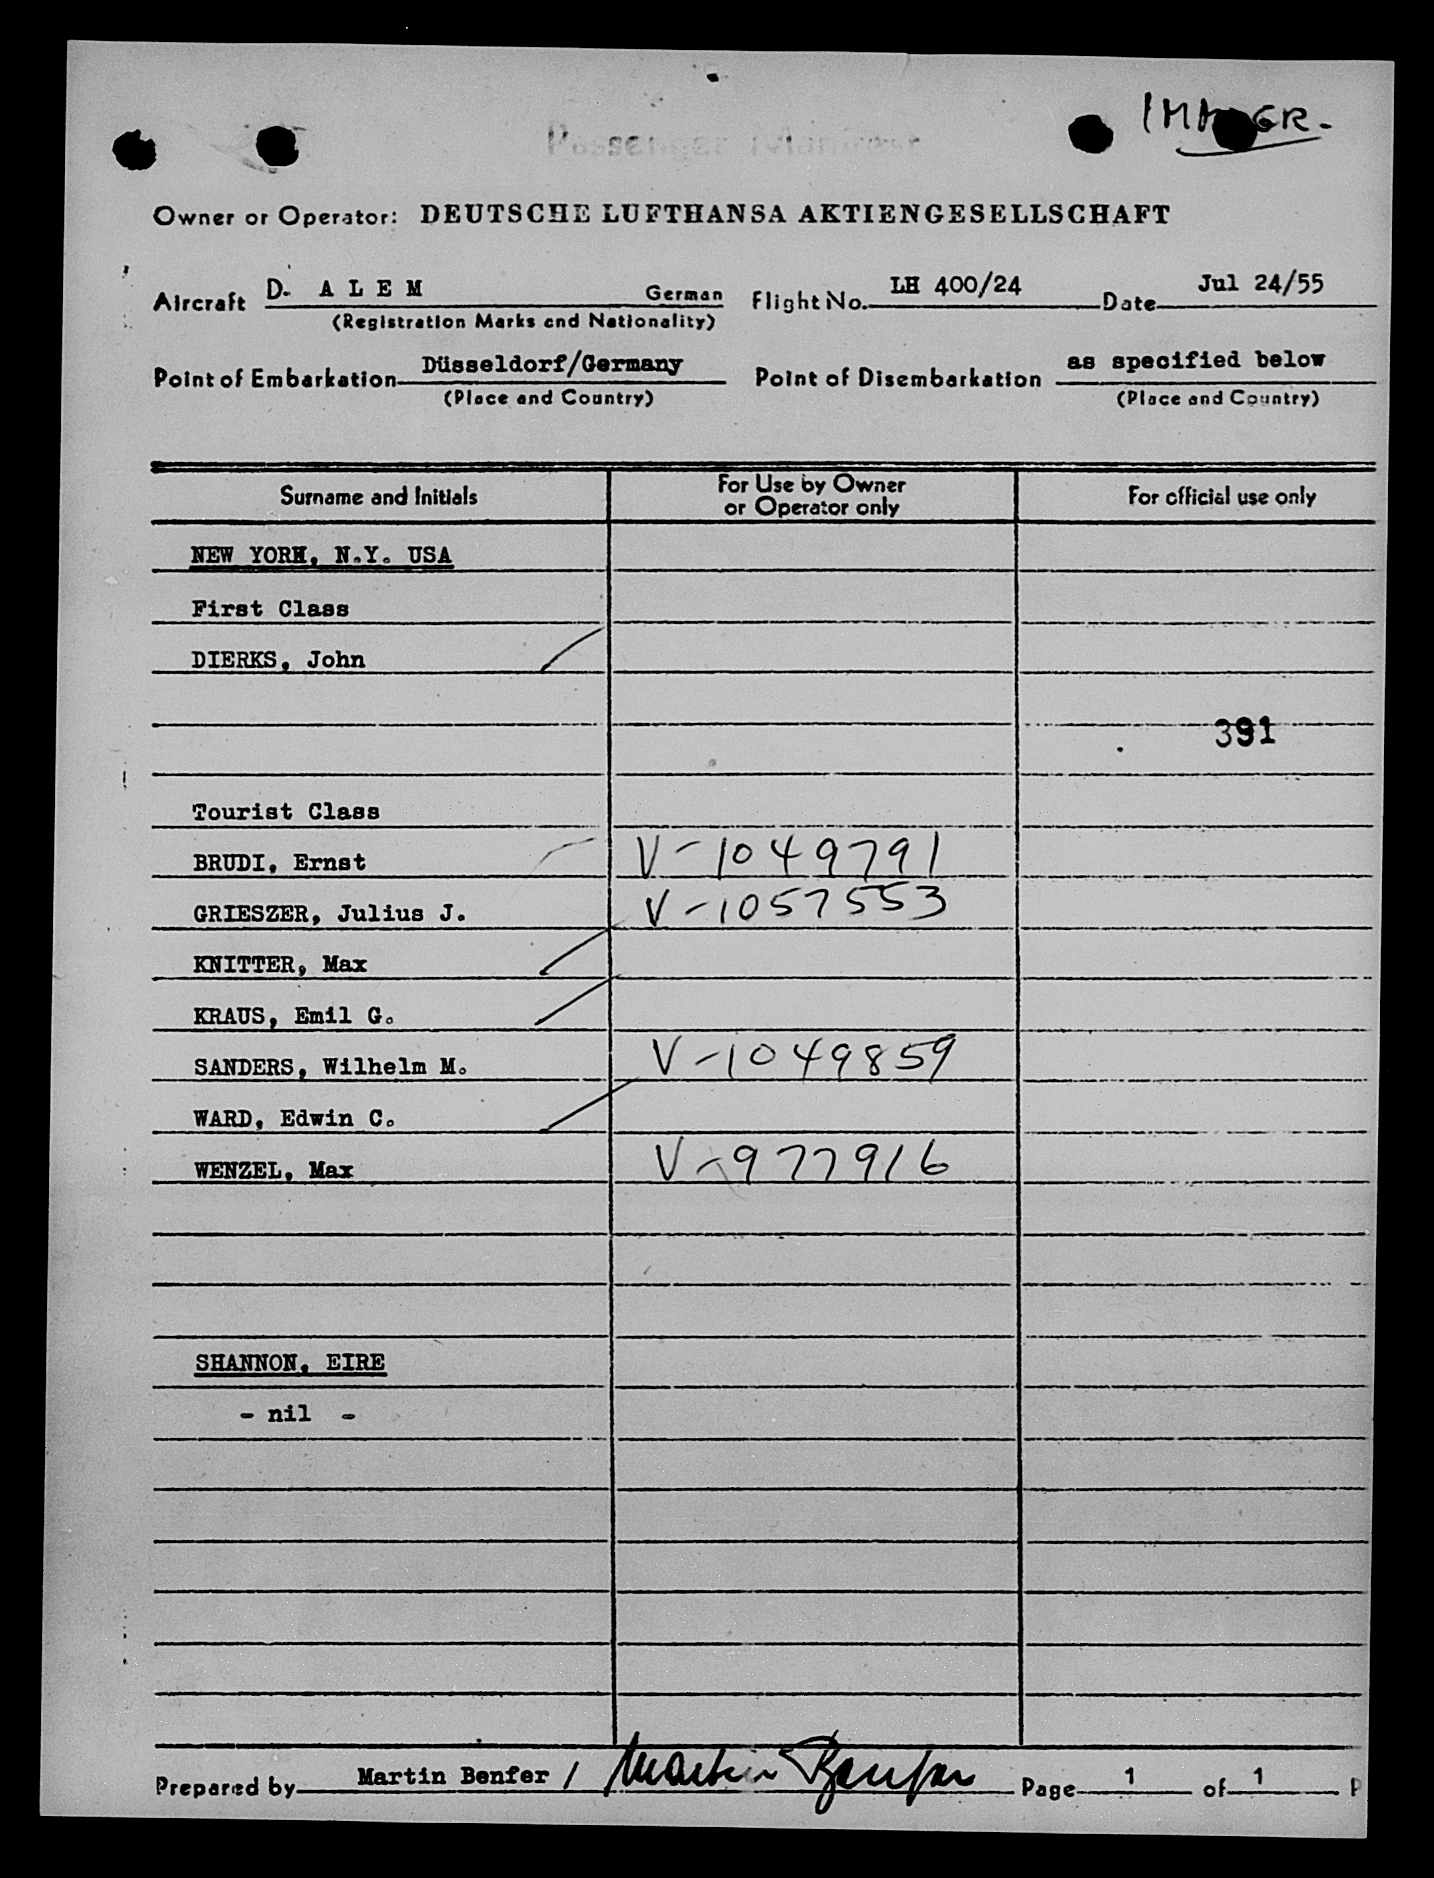 Passenger Manifest
Owner or Operator: DEUTSCHE LUFTHANSA AKTIENGESELLSCHAFT
Aircraft D- A L E M German Flight No. LH 400/24 Date Jul 24/55
(Registration Marks and Nationality)
Point of Embarkation Düsseldorf/Germany Point of Disembarkation as specified below
(Place and Country) (Place and Country)
Surname and Initials For Use by Owner or Operator only For official use only
NEW YORK, N.Y. USA
First Class
DIERKS, John
391
Tourist Class
BRUDI, Ernst V-1049791
GRIESZER, Julius J. V-1057553
KNITTER, Max
KRAUS, Emil G.
SANDERS, Wilhelm M. V-1049859
WARD, Edwin C.
WENZEL, Max V-977916
SHANNON, EIRE
- nil -
Prepared by Martin Benfer / Martin Benfer Page 1 of 1 P